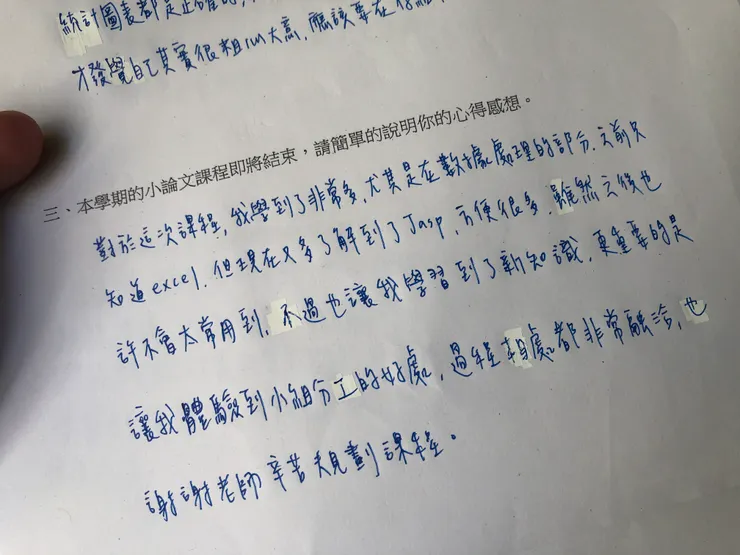 統計圖表都是正確的,
才發覺自己其實很粗心大意,應該要在仔細
三、本學期的小論文課程即將結束,請簡單的說明你的心得感想。
對於這次課程,我學到了非常多,尤其是在數據處理的部分,之前只
知道excel,但現在又多了解到了Jasp,方便很多,雖然之後也
許不會太常用到,不過也讓我學習到了新知識,更重要的是
讓我體驗到小組分工的好處,過程相處都非常融洽,也
謝謝老師辛苦規劃課程。